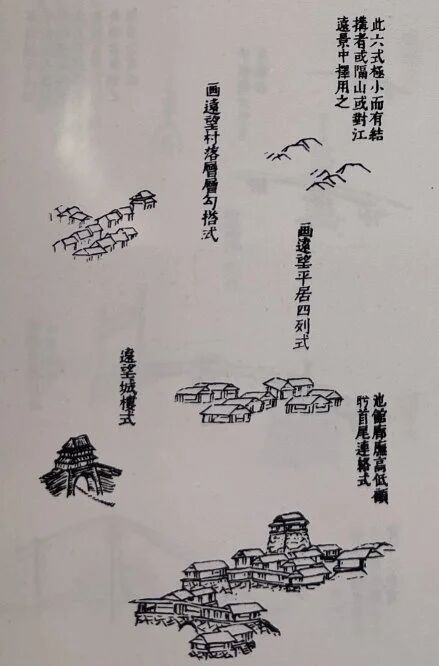 此六式極小而有結
搆者或隔山或對江
遠景中擇用之
画遠望村落層層勾搭式
画遠望平居四列式
遠望城樓式
池館廊廡高低顧
盻首尾連絡式